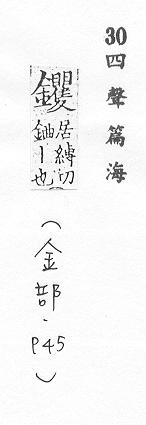 30四聲篇海
钁
居縛切
丨也
(金部.P45)